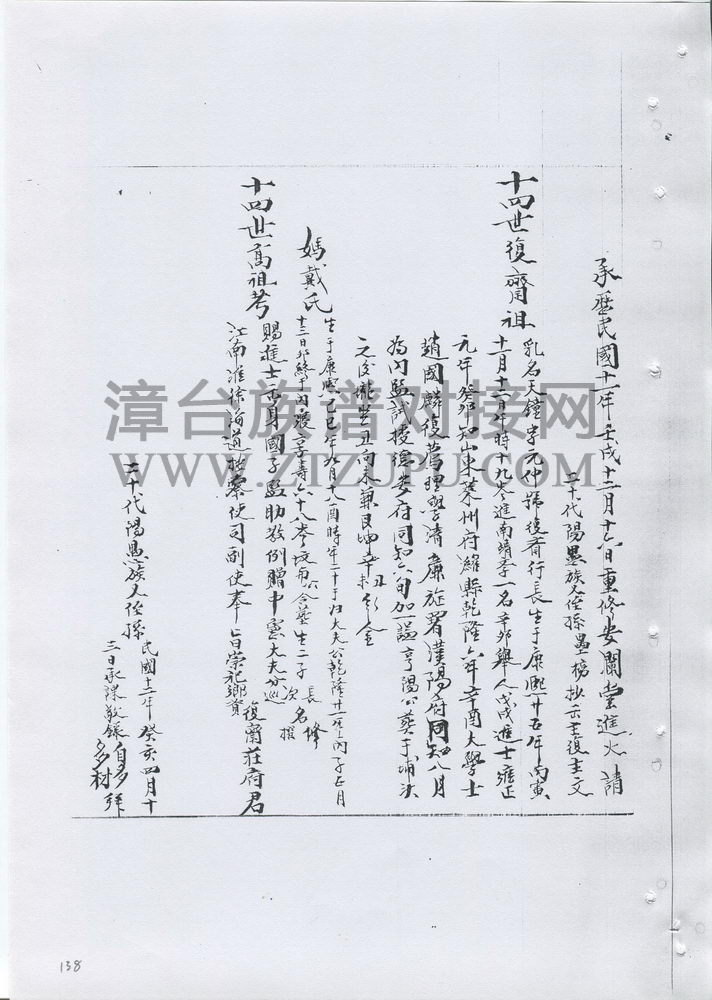 承歷民國十一年壬戌十二月十六日重修安瀾堂進火請
二十代陽愚族又侄孫墨榜抄示主復主文
十四世復齋祖 乳名天鐘字元仲號復齋行長生于康熙廿五年丙寅
十一月十一日 時十九岁進南靖學一名辛卯舉人戊戌進士雍正
元年癸卯知山東萊州府濰縣乾隆六年辛酉大學士
趙國麟復薦理學清廉旋署漢陽府同知八月
為內監 授德安府同知 加一謚亨陽公葬于埔
坐丑向未兼艮坤辛丑辛未分金
媽戴氏 生于康熙 己巳年九月十八酉時年二十于歸大夫公乾隆廿一年丙子五月
十三日卯終 內寢享壽六十八岁 公合葬生二子 長名修 次名
十四世高祖考 賜進士出身國子監助教例贈中憲大夫分巡
江南淮徐海道按察使司副使奉旨崇祀鄉賢 復齋莊府君
二十代陽愚族又侄孫
民國十二年癸亥四月十
三日承 敬錄 多村 拜
漳台族谱对接网
WWW.ZTZUPU.COM
138